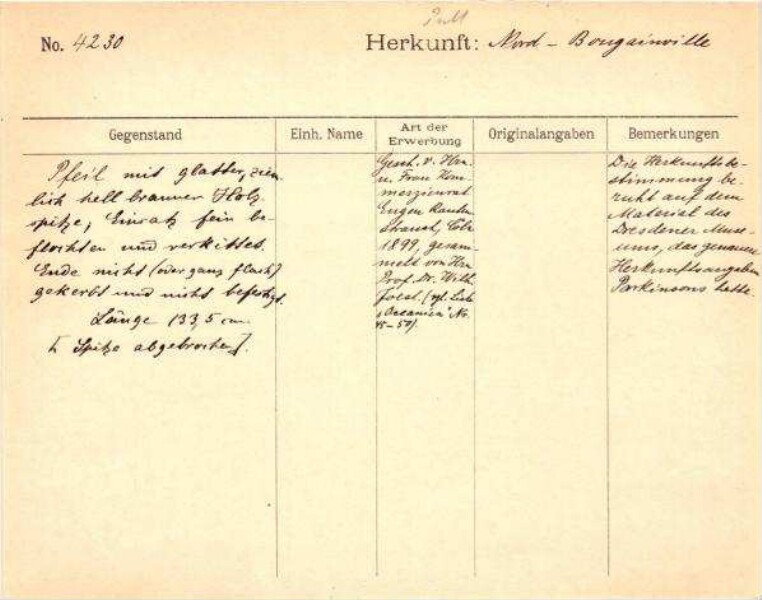 No. 4230
Herkunft: Nord - Bougainville
Gegenstand
Einh. Name
Art der Erwerbung
Originalangaben
Bemerkungen
Pfeil mit glatter, ziem
lich hell brauner Holz
spitze, Einsatz fein be-
flochten und verkittet.
Ende nicht (oder ganz flach)
gekerbt und nicht befestigt.
Länge 133,5 cm.
[Spitze abgebrochen].
Gesch. v. Hrn.
u. Frau Kom
merzienrat
Eugen Rauten
strauch, Cöln
1899, gesam-
melt von Hrn
Prof. Dr. Wilh.
Joest. (vgl. Liste
"Oceanien" No.
45-50).
Die Herkunftsbe-
stimmung be-
ruht auf dem
Material des
Dresdener Muse-
ums, das genauere
Herkunftsangaben
Parkinsons hatte.